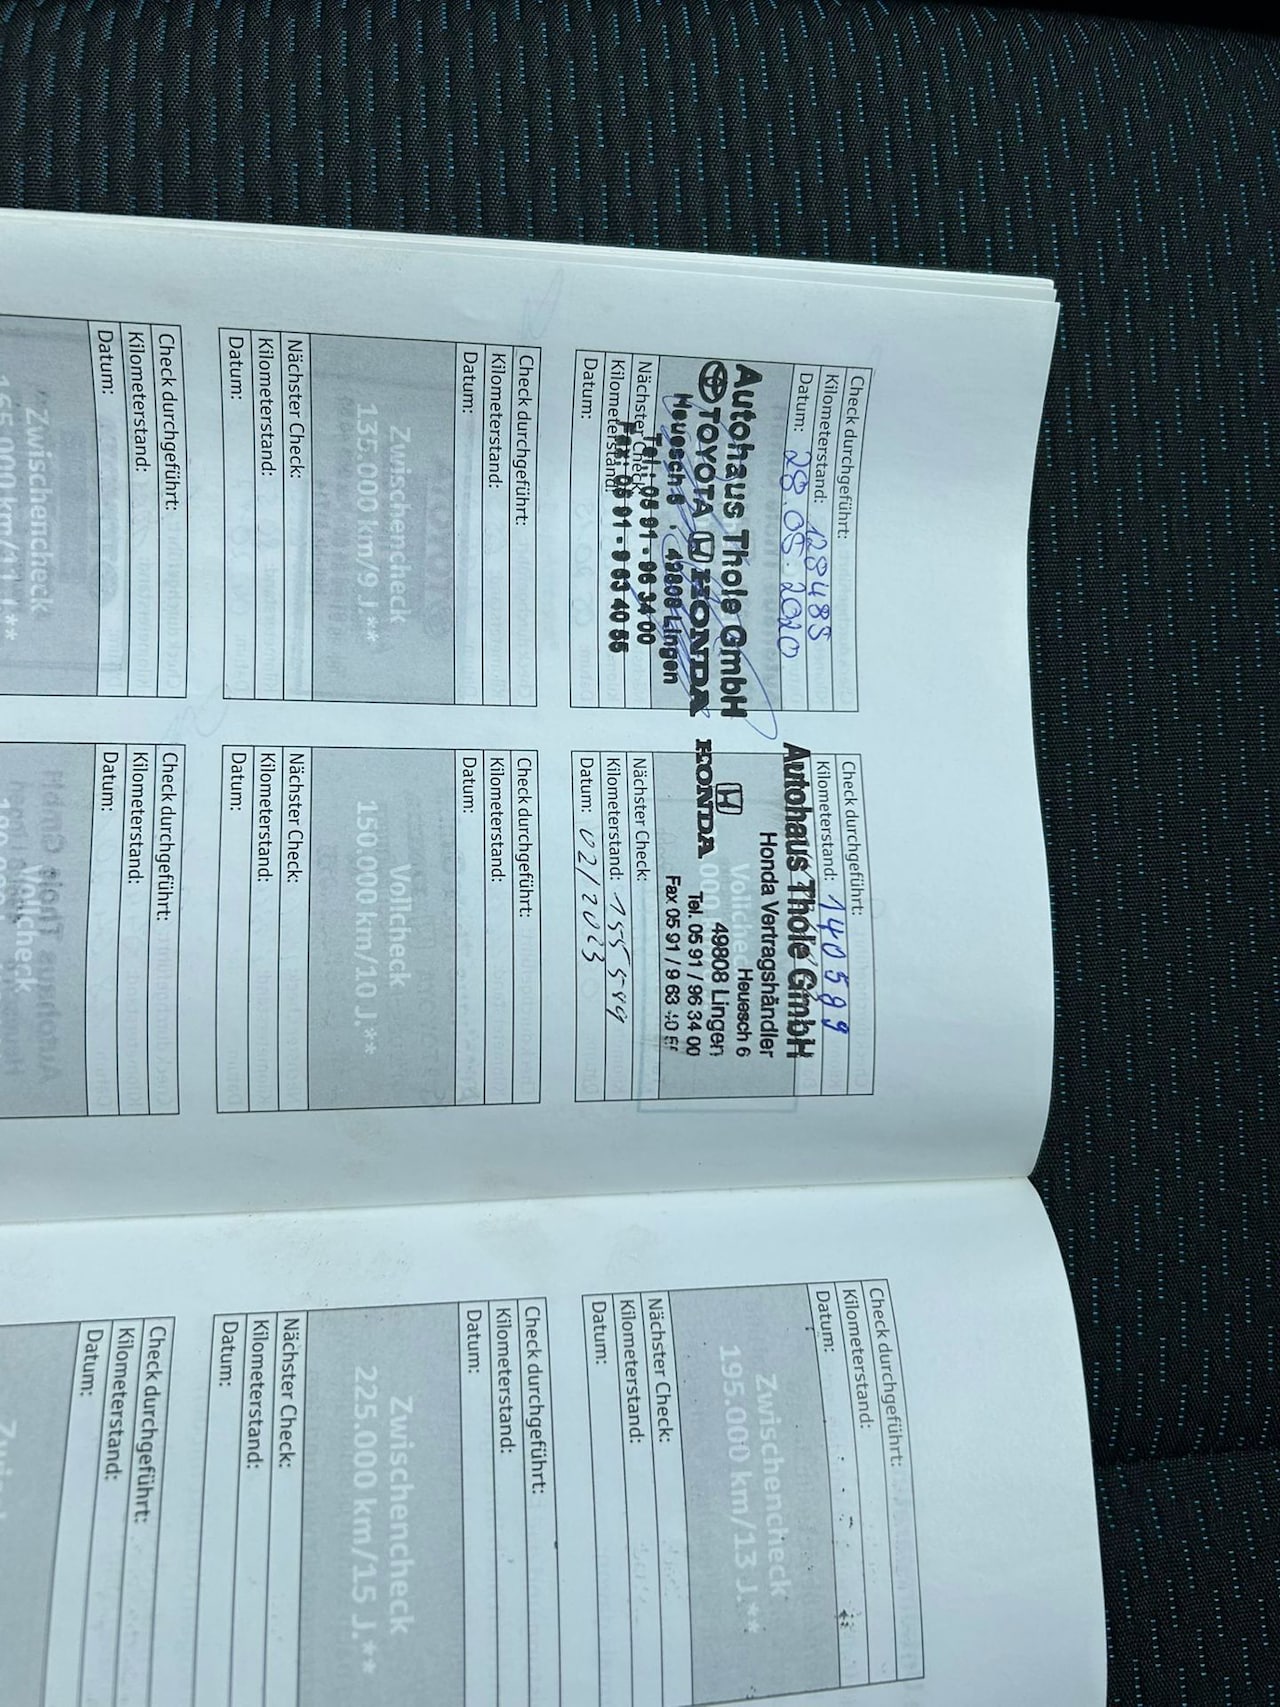 Check durchgeführt:
Kilometerstand: 128485
Datum: 28.05.2020
Autohaus Thole GmbH
TOYOTA HONDA
Heuesch 6, 49808 Lingen
Tel.: 05 91 - 96 34 00
Fax: 05 91 - 9 63 40 55
Nächster Check:
Kilometerstand:
Datum:
Check durchgeführt:
Kilometerstand: 140589
Autohaus Thole GmbH
Honda Vertragshändler
Heuesch 6
49808 Lingen
Tel. 05 91 / 96 34 00
Fax 05 91 / 9 63 40
HONDA
Vollcheck
Nächster Check:
Kilometerstand: 155544
Datum: 02/2023
Check durchgeführt:
Kilometerstand:
Datum:
Zwischencheck
135.000 km/9 J.**
Nächster Check:
Kilometerstand:
Datum:
Check durchgeführt:
Kilometerstand:
Datum:
Vollcheck
150.000 km/10 J.**
Nächster Check:
Kilometerstand:
Datum:
Check durchgeführt:
Kilometerstand:
Datum:
Zwischencheck
165.000 km/11 J.**
Check durchgeführt:
Kilometerstand:
Datum:
Vollcheck
Check durchgeführt:
Kilometerstand:
Datum:
Zwischencheck
195.000 km/13 J.**
Nächster Check:
Kilometerstand:
Datum:
Check durchgeführt:
Kilometerstand:
Datum:
Zwischencheck
225.000 km/15 J.**
Nächster Check:
Kilometerstand:
Datum:
Check durchgeführt:
Kilometerstand:
Datum: